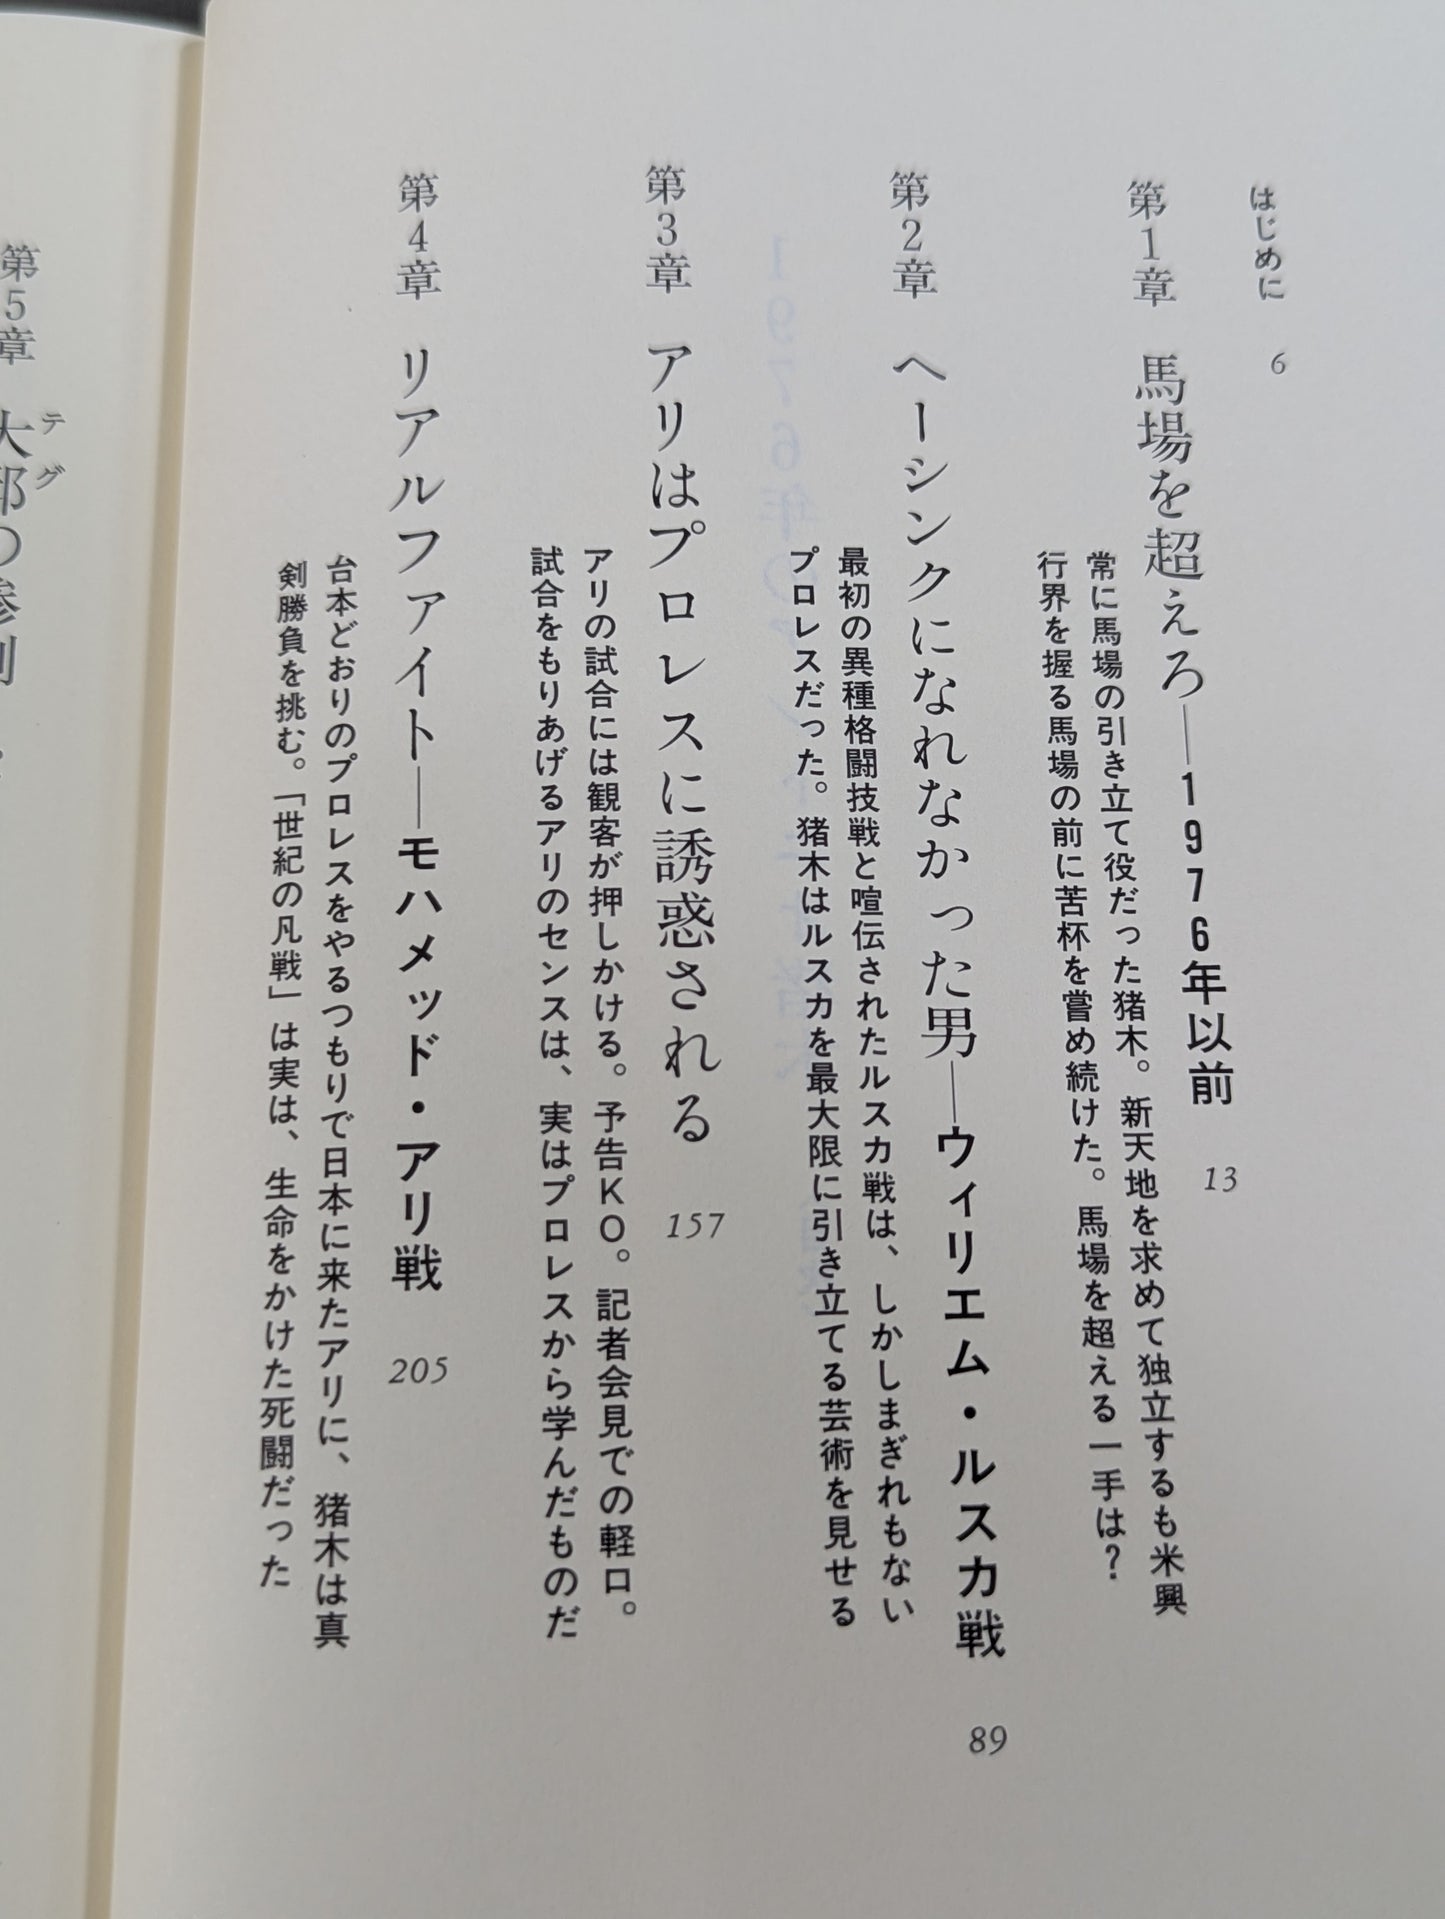 はじめに 6
第1章 馬場を超えろ──1976年以前 13
常に馬場の引き立て役だった猪木。新天地を求めて独立するも米興
行界を握る馬場の前に苦杯を嘗め続けた。馬場を超える一手は？
第2章 ヘーシンクになれなかった男──ウィリエム・ルスカ戦 89
最初の異種格闘技戦と喧伝されたルスカ戦は、しかしまぎれもない
プロレスだった。猪木はルスカを最大限に引き立てる芸術を見せる
第3章 アリはプロレスに誘惑される 157
アリの試合には観客が押しかける。予告KO。記者会見での軽口。
試合をもりあげるアリのセンスは、実はプロレスから学んだものだ
第4章 リアルファイト──モハメッド・アリ戦 205
台本どおりのプロレスをやるつもりで日本に来たアリに、猪木は真
剣勝負を挑む。「世紀の凡戦」は実は、生命をかけた死闘だった
第5章 大邱の惨劇
テグ